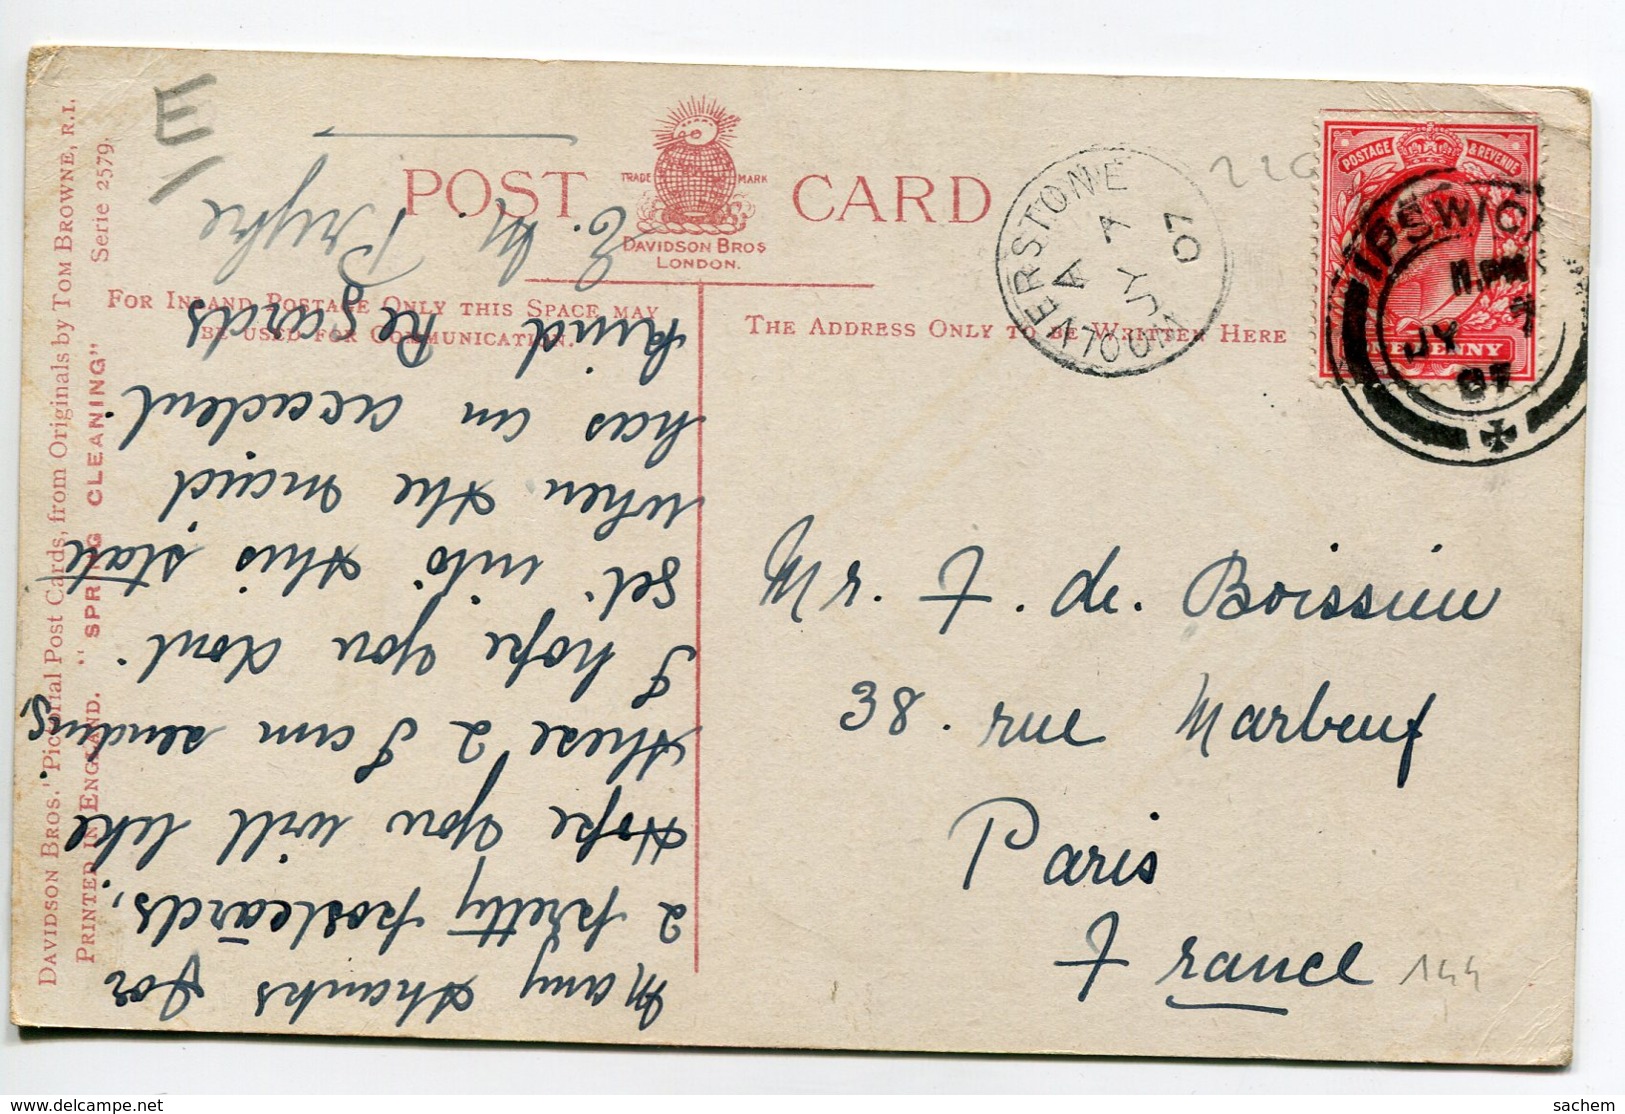 DAVIDSON BROS.' Pictorial Post Cards, from Originals by TOM BROWNE, R.I.
PRINTED IN ENGLAND. "SPRING CLEANING" Serie 2579.
E
POST CARD
TRADE MARK
DAVIDSON BROS
LONDON.
FOR INLAND POSTAGE ONLY THIS SPACE MAY
BE USED FOR COMMUNICATION.
THE ADDRESS ONLY TO BE WRITTEN HERE
WOOLVERSTONE
A
7
JY
07
POSTAGE & REVENUE
ONE PENNY
IPSWICH
11.PM
JY 7
07
Many thanks for
2 pretty postcards,
Hope you will like
these 2 I am sending
I hope you dont
get into this state
when the maid
has an accident
kind Regards
E. M.
Mr. F. de. Boissieu
38. rue Marbeuf
Paris
France
144
sachem